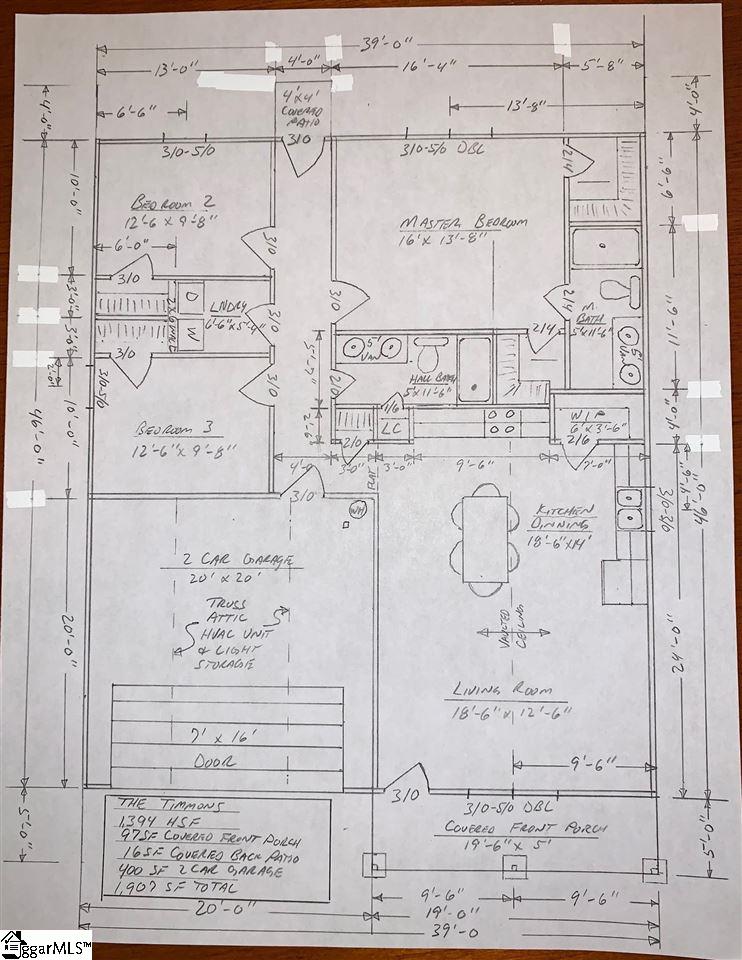 39'-0"
13'-0"
4'-0"
16'-4"
5'-8"
6'-6"
4'x4'
COVERED
PATIO
13'-8"
4'-0"
4'-0"
3/0-5/0
3/0
3/0-5/0 DBL
2/4
10'-0"
6'-6"
BEDROOM 2
12'-6 x 9'-8"
6'-0"
MASTER BEDROOM
16' x 13'-8"
3/0
3/0
3/0
2/4
M.
BATH
5'x11'-6"
LNDRY
6'-6"x5'-4"
D
W
3/0
3'-0"
3'-0"
11'-6"
2/4
5'
VAN
5'
VAN
HALL BATH
5'x11'-6"
2/0
3/0
3/0
3/0-5/0
2'-0"
10'-0"
46'-0"
BEDROOM 3
12'-6" x 9'-8"
2'-6"
1/6
LC
2/0
W.I.P
6'x3'-6"
2/6
4'-0"
4'-0"
3'-0"
3'-0"
9'-6"
7'-0"
FLAT
4'-6"
46'-0"
3/0
WH
KITCHEN
DINNING
18'-6"x14'
3/0-3/0
2 CAR GARAGE
20' x 20'
TRUSS
ATTIC
HVAC UNIT
& LIGHT
STORAGE
20'-0"
VAULTED
CEILING
24'-0"
LIVING ROOM
18'-6" x 12'-6"
7' x 16'
DOOR
9'-6"
3/0
3/0-5/0 DBL
5'-0"
5'-0"
COVERED FRONT PORCH
19'-6" x 5'
THE TIMMONS
1,394 HSF
97SF COVERED FRONT PORCH
16SF COVERED BACK PATIO
400 SF 2 CAR GARAGE
1,907 SF TOTAL
9'-6"
9'-6"
20'-0"
19'-0"
39'-0
ggarMLS™